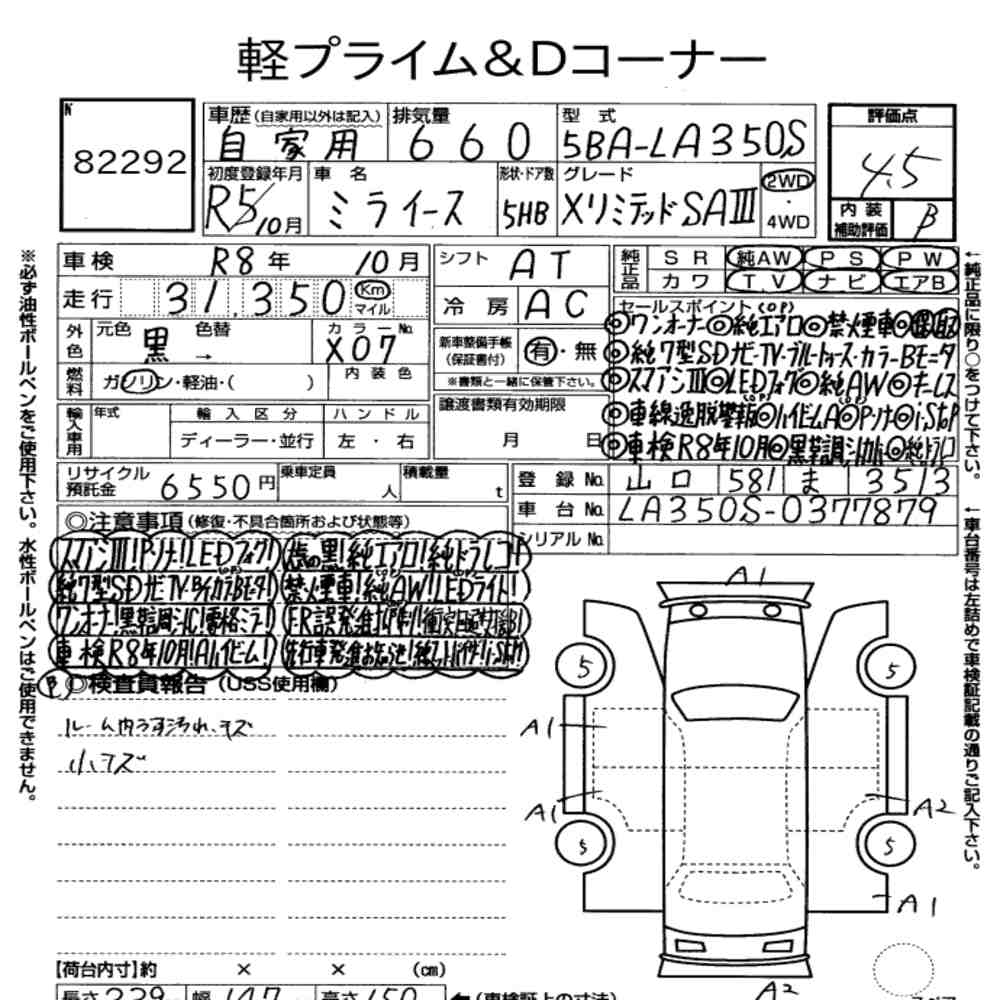 軽プライム&Dコーナー
N
82292
車歴 (自家用以外は記入) 自家用
排気量 660
型式 5BA-LA350S
評価点 4.5
初度登録年月 R5/10月
車名 ミライース
形状・ドア数 5HB
グレード XリミテッドSAⅢ
2WD・4WD
内装補助評価 B
車検 R8年 10月
シフト AT
純正品 SR 純AW PS PW
カワ TV ナビ エアB
走行 31,350 Km マイル
冷房 AC
セールスポイント(OP)
◎ワンオーナー◎純エアロ◎禁煙車◎
外色 元色 黒 色替 →
カラーNo. X07
新車整備手帳(保証書付) 有・無
◎純7型SDナビ・TV・ブルートゥース・カラーBモニタ
燃料 ガソリン・軽油・( )
内装色
※書類と一緒に保管下さい。
◎スマアシⅢ◎LEDフォグ◎純AW◎キーレス
輸入車用 年式 輸入区分 ハンドル
ディーラー・並行 左・右
譲渡書類有効期限
月 日
◎車線逸脱警報◎ハイビームA◎Pソナー◎i-Stop
◎車検R8年10月◎黒革調シカバ◎純ドラレコ
リサイクル預託金 6550円
乗車定員 人
積載量 t
登録No. 山口 581 ま 3513
車台No. LA350S-0377879
シリアルNo.
◎注意事項(修復・不具合箇所および状態等)
スマアシⅢ!Pソナー!LEDフォグ! 黒!純エアロ!純ドラレコ!
純7型SDナビTV・B/カラBモニタ! 禁煙車!純AW!LEDライト!
ワンオーナー!黒革調シカバ!電格ミラー! F.R誤発進抑制!
車検R8年10月!Aハイビーム! 先行車発進お知らせ! i-Stop!
B ◎検査員報告(USS使用欄)
ルーム内うす汚れ、キズ
小キズ
A1
5 5
A1
A1 A2
5 5
A1
A2
【荷台内寸】約 × × (cm)
長さ 339 幅 147 高さ 150 ←(車検証上の寸法)
※必ず油性ボールペンをご使用下さい。水性ボールペンはご使用できません。
←純正品に限り○をつけて下さい。
←車台番号は左詰めで車検証記載の通りご記入下さい。